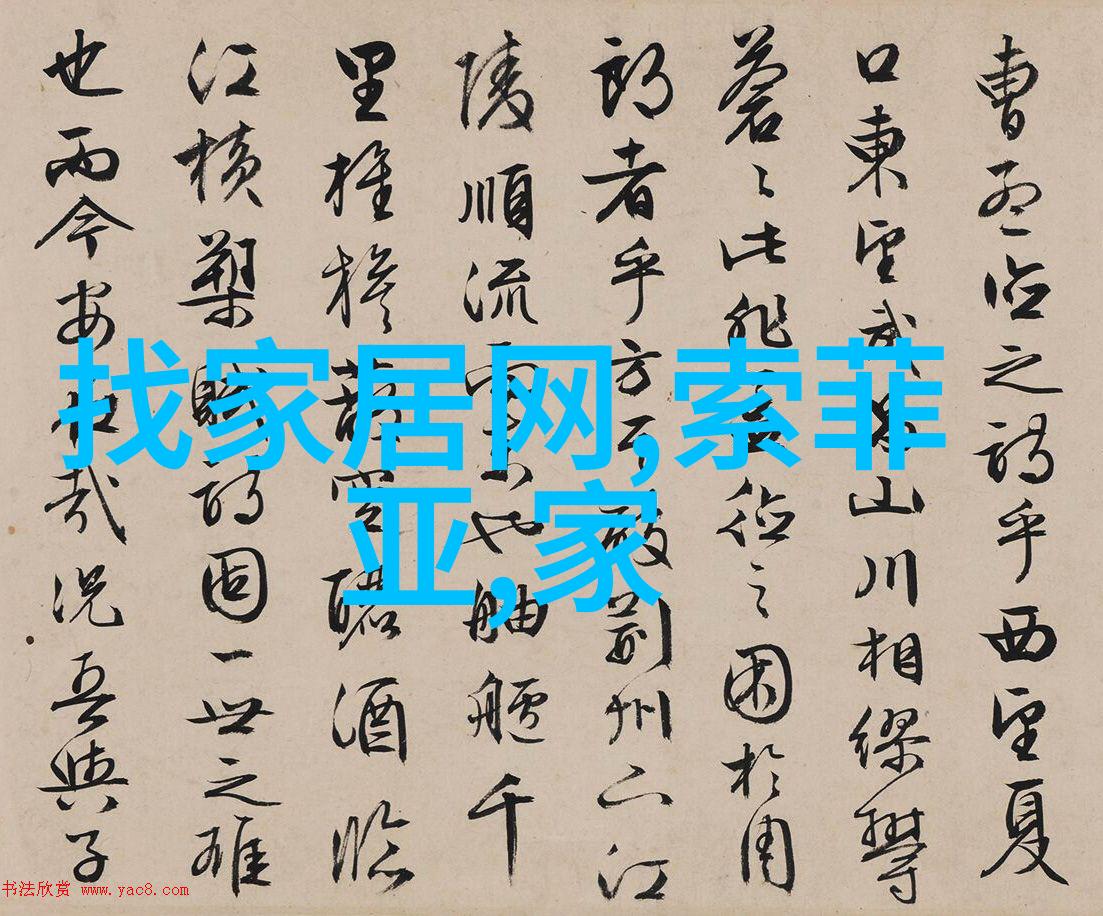 曹孟德之詩乎西望夏
口東望武昌山川相繆鬱
蒼〻此非孟德之困於周
郎者乎方其破荊州下江
陵順流而東也舳艫千
里旌旗蔽空釃酒臨
江橫槊賦詩固一世之雄
也而今安在哉況吾與子
找家居网,索菲
亚,家
书法欣赏 www.yac8.com